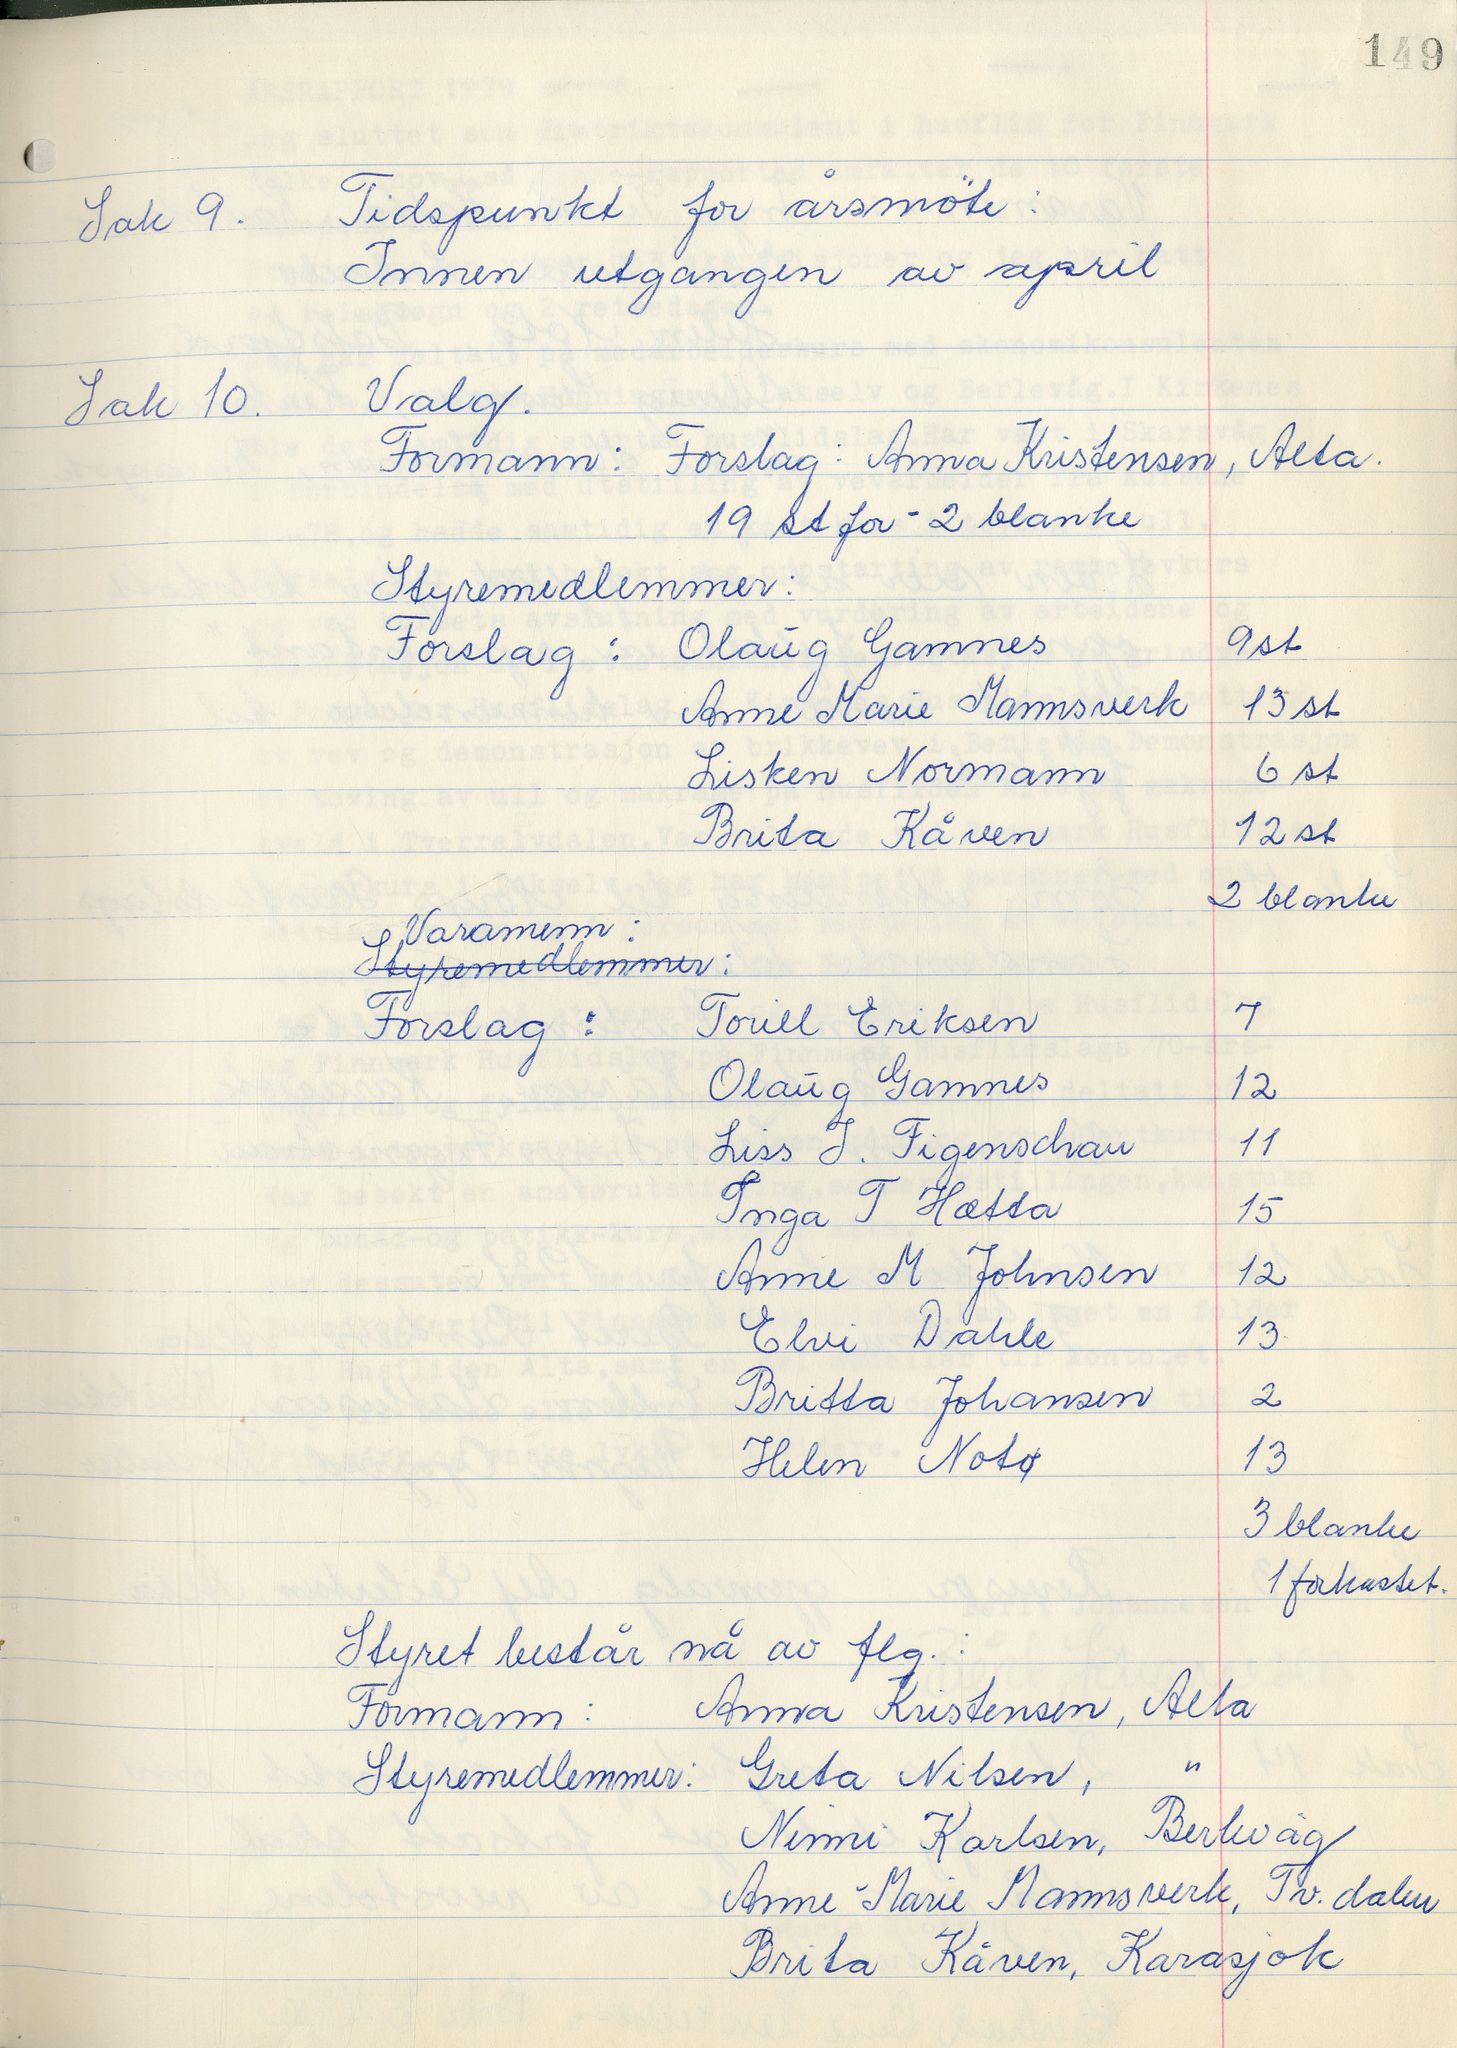 149
Sak 9. Tidspunkt for årsmöte:
Innen utgangen av april
Sak 10. Valg.
Formann: Forslag: Anna Kristensen, Alta.
19 st for - 2 blanke
Styremedlemmer:
Forslag: Olaug Gamnes 9 st
Anne Marie Mannsverk 13 st
Lisken Normann 6 st
Brita Kåven 12 st
2 blanke
Varamenn:
Styremedlemmer:
Forslag: Torill Eriksen 7
Olaug Gamnes 12
Liss J. Figenschau 11
Inga T Hætta 15
Anne M Johnsen 12
Elvi Dahle 13
Britta Johansen 2
Helen Notø 13
3 blanke
1 forkastet.
Styret består nå av flg.:
Formann: Anna Kristensen, Alta
Styremedlemmer: Greta Nilsen, "
Ninni Karlsen, Berlevåg
Anne-Marie Mannsverk, Tv. dalen
Brita Kåven, Karasjok